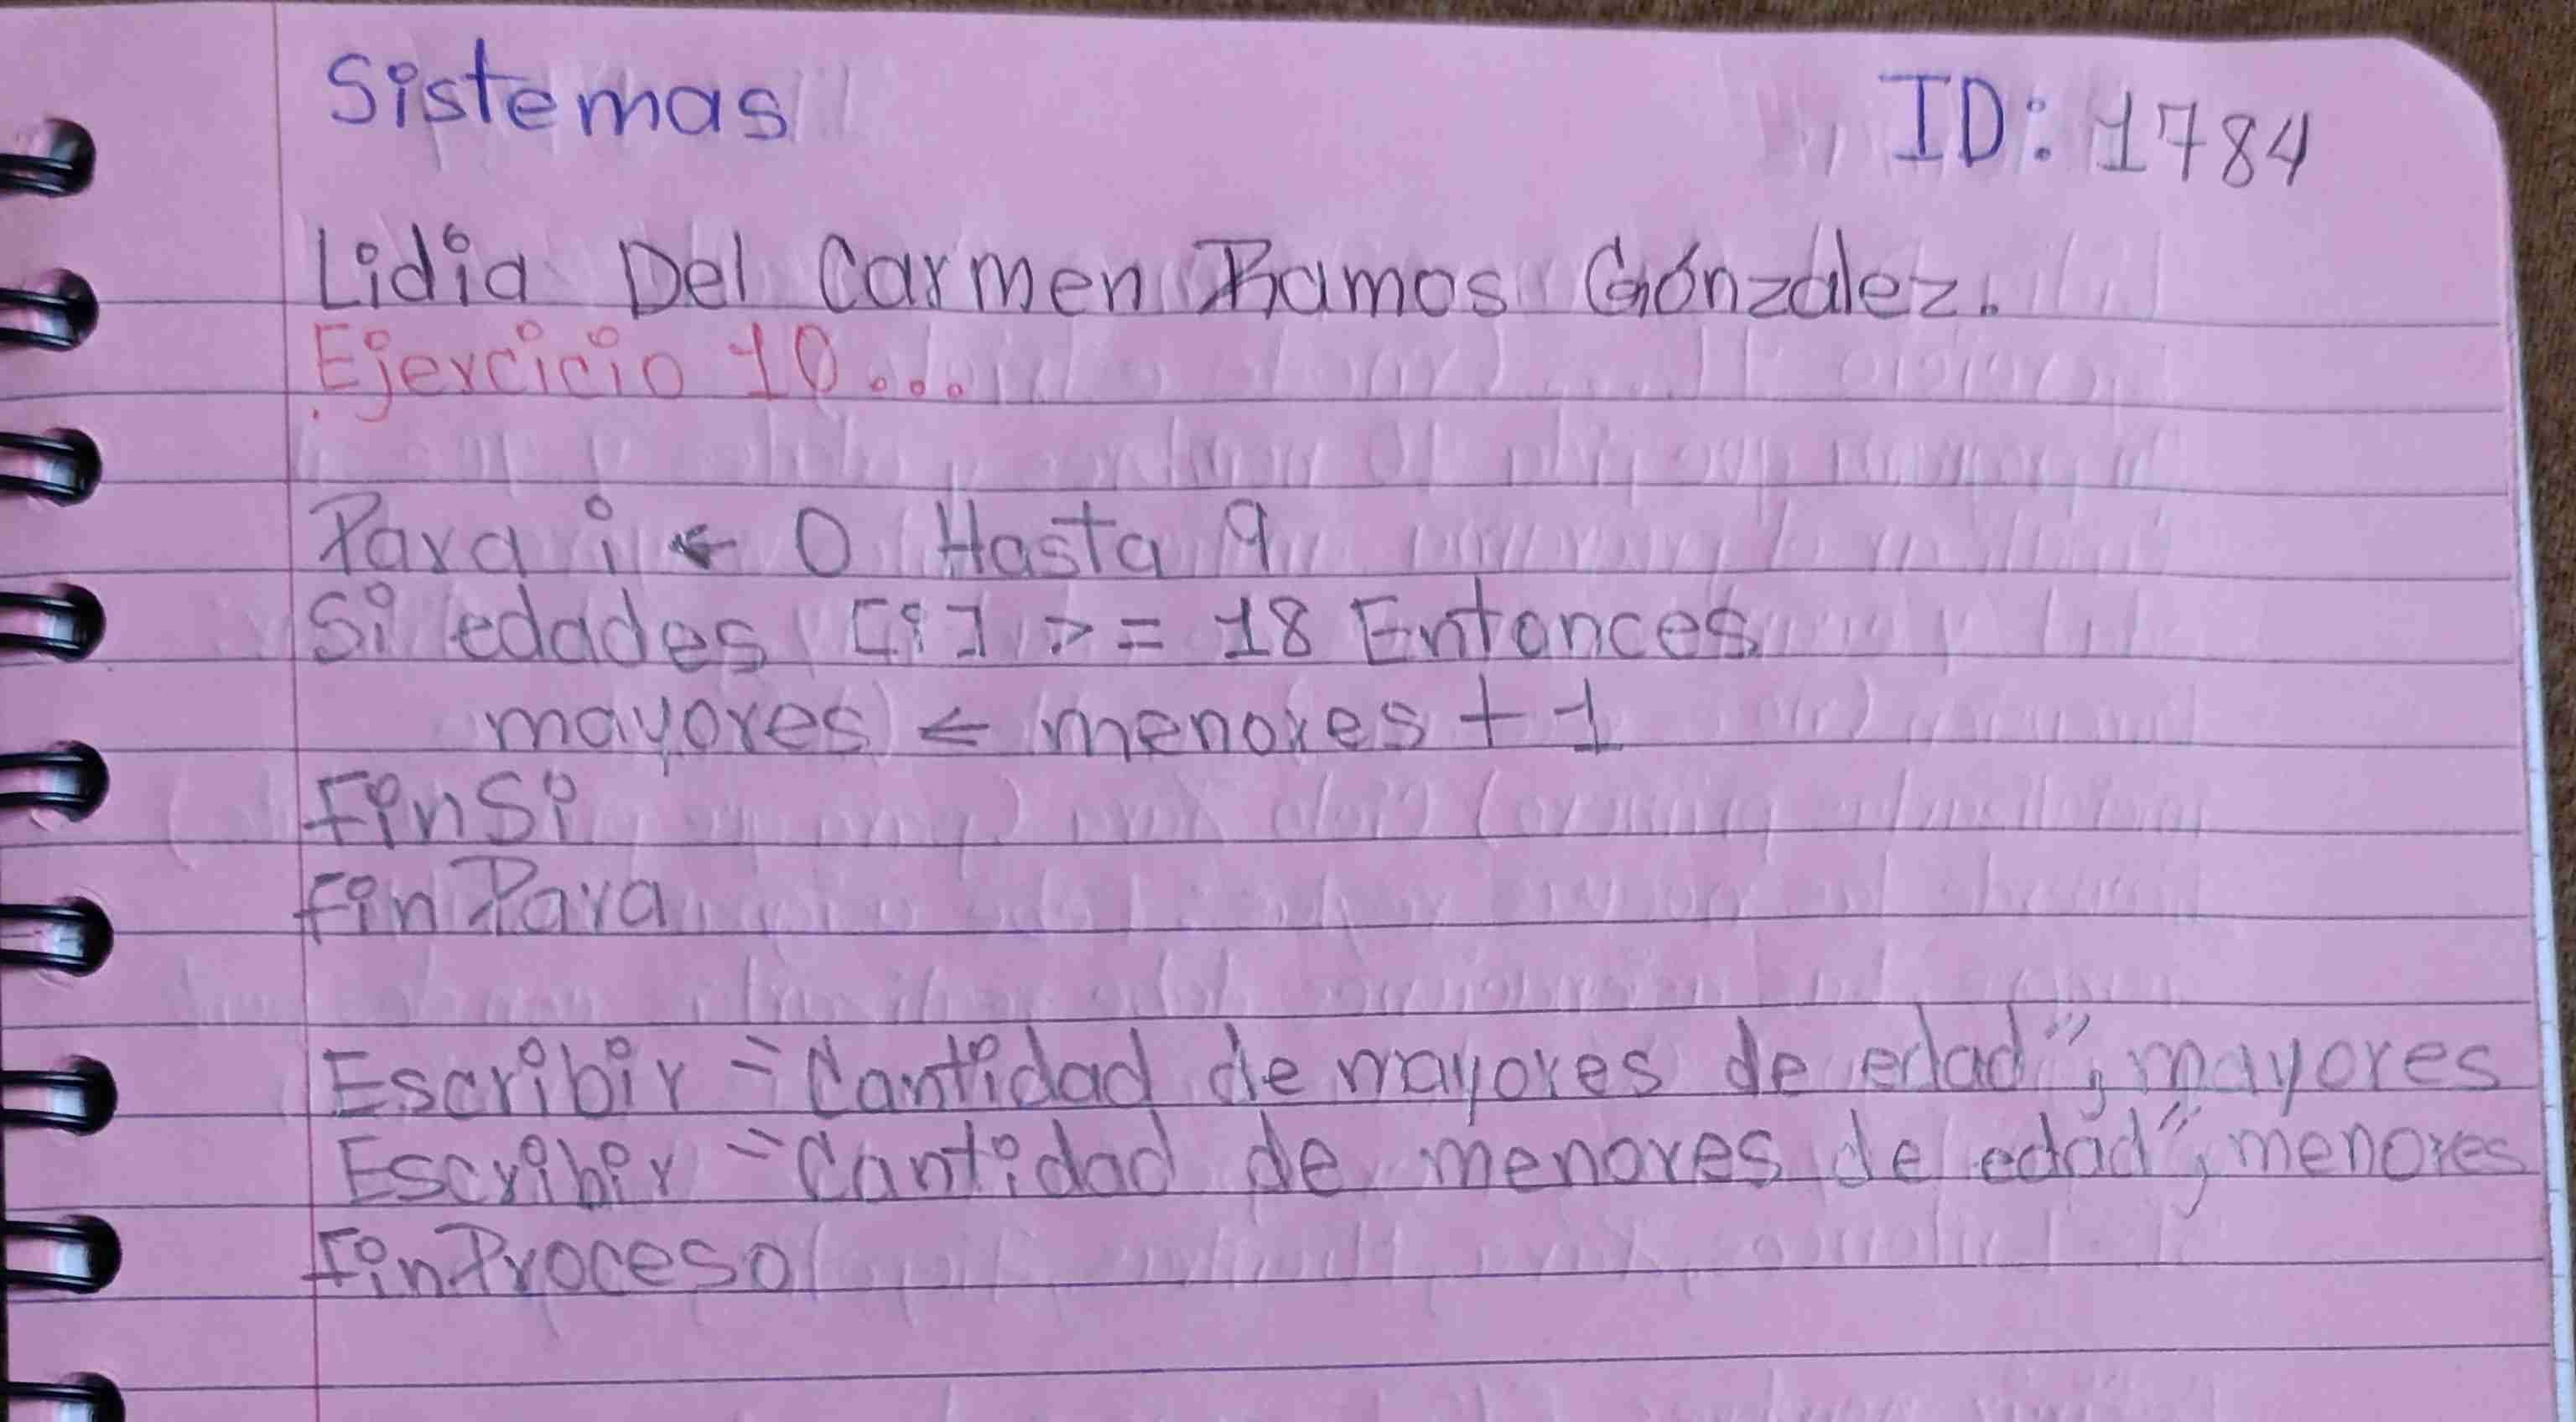 Sistemas ID: 1784
Lidia Del Carmen Ramos Gónzález.
Ejercicio 10...
Para i ← 0 Hasta 9
Si edades [i] >= 18 Entonces
mayores ← menores + 1
FinSi
FinPara
Escribir "Cantidad de mayores de edad", mayores
Escribir "Cantidad de menores de edad", menores
FinProceso